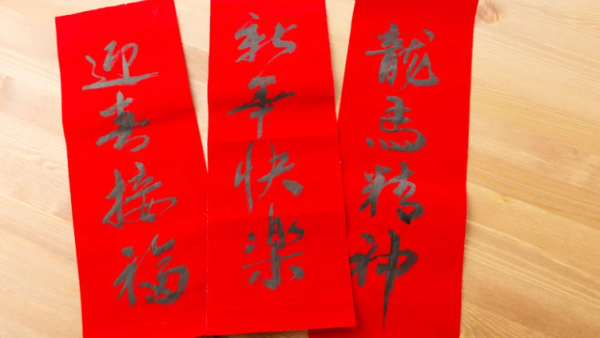 龍馬精神
新年快樂
迎春接福